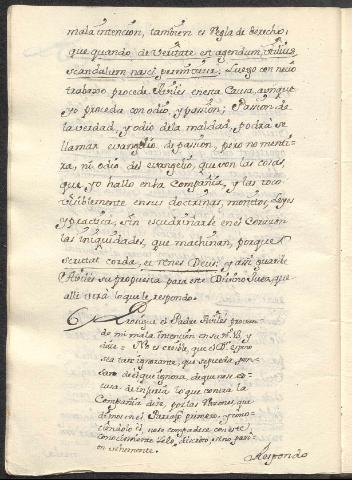 mala intencion, tambien es Regla de derecho,
que quando de veritate est agendum, utilius
scandalum nasci permittitur; Luego con necio
trabajo procede Aviles en esta Causa, aunque
yo proceda con odio, y pasion; Pasion de
la verdad, y odio de la maldad, podrà se
llamar evangelio de pasion, pero no menti-
ra, ni odio del evangelio, que son las cosas,
que yo hallo en la Compañia, y las toco
visiblemente en sus doctrinas, monitos, Leyes
y practica, sin escudriñarle en el Corazon
las iniquidades, que machinan, porque
scrutat corda, et renes Deus; y assi guarde
Aviles su propuesta para ese Divino Juez, que
alli verà lo que le respondo.
6 Prosigue el Padre Aviles
de mi mala intencion en su nº 8 y
dice = No es creible, que el Dr. espino
sea tan ignorante, que se pueda pen-
sar de el que ignora, de que nos es-
tan de injuria lo que contra la
Compañia dice, por las Razones, que
dimos en el primero, y
el, no se compadece con este
conocimiento zelo, discreto, sino pasi-
on vehemente.
Respondo